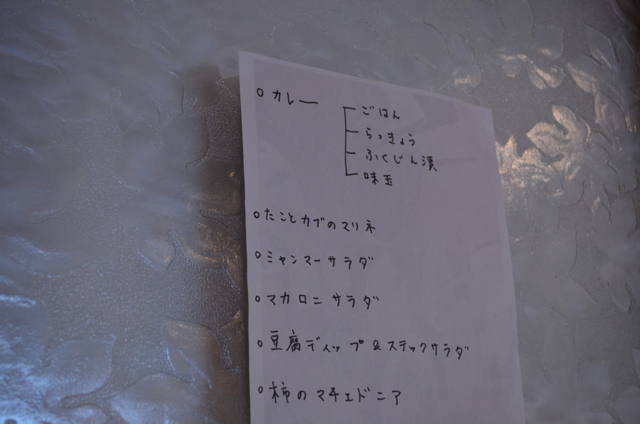 カレー
ごはん
らっきょう
ふくじん漬
味玉
たことカブのマリネ
ミャンマーサラダ
マカロニサラダ
豆腐ディップ&スティックサラダ
柿のマチェドニア